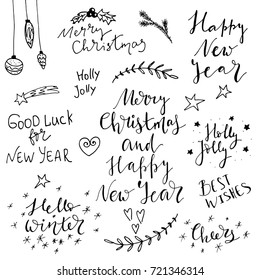 Merry
Christmas
Happy
New
Year
Holly
Jolly
GOOD LUCK
for
NEW YEAR
Merry
Christmas
and
Happy
New Year
Holly
Jolly
BEST
WISHES
Hello
winter
Cheers
shutterstock
IMAGE ID: 721346314
www.shutterstock.com